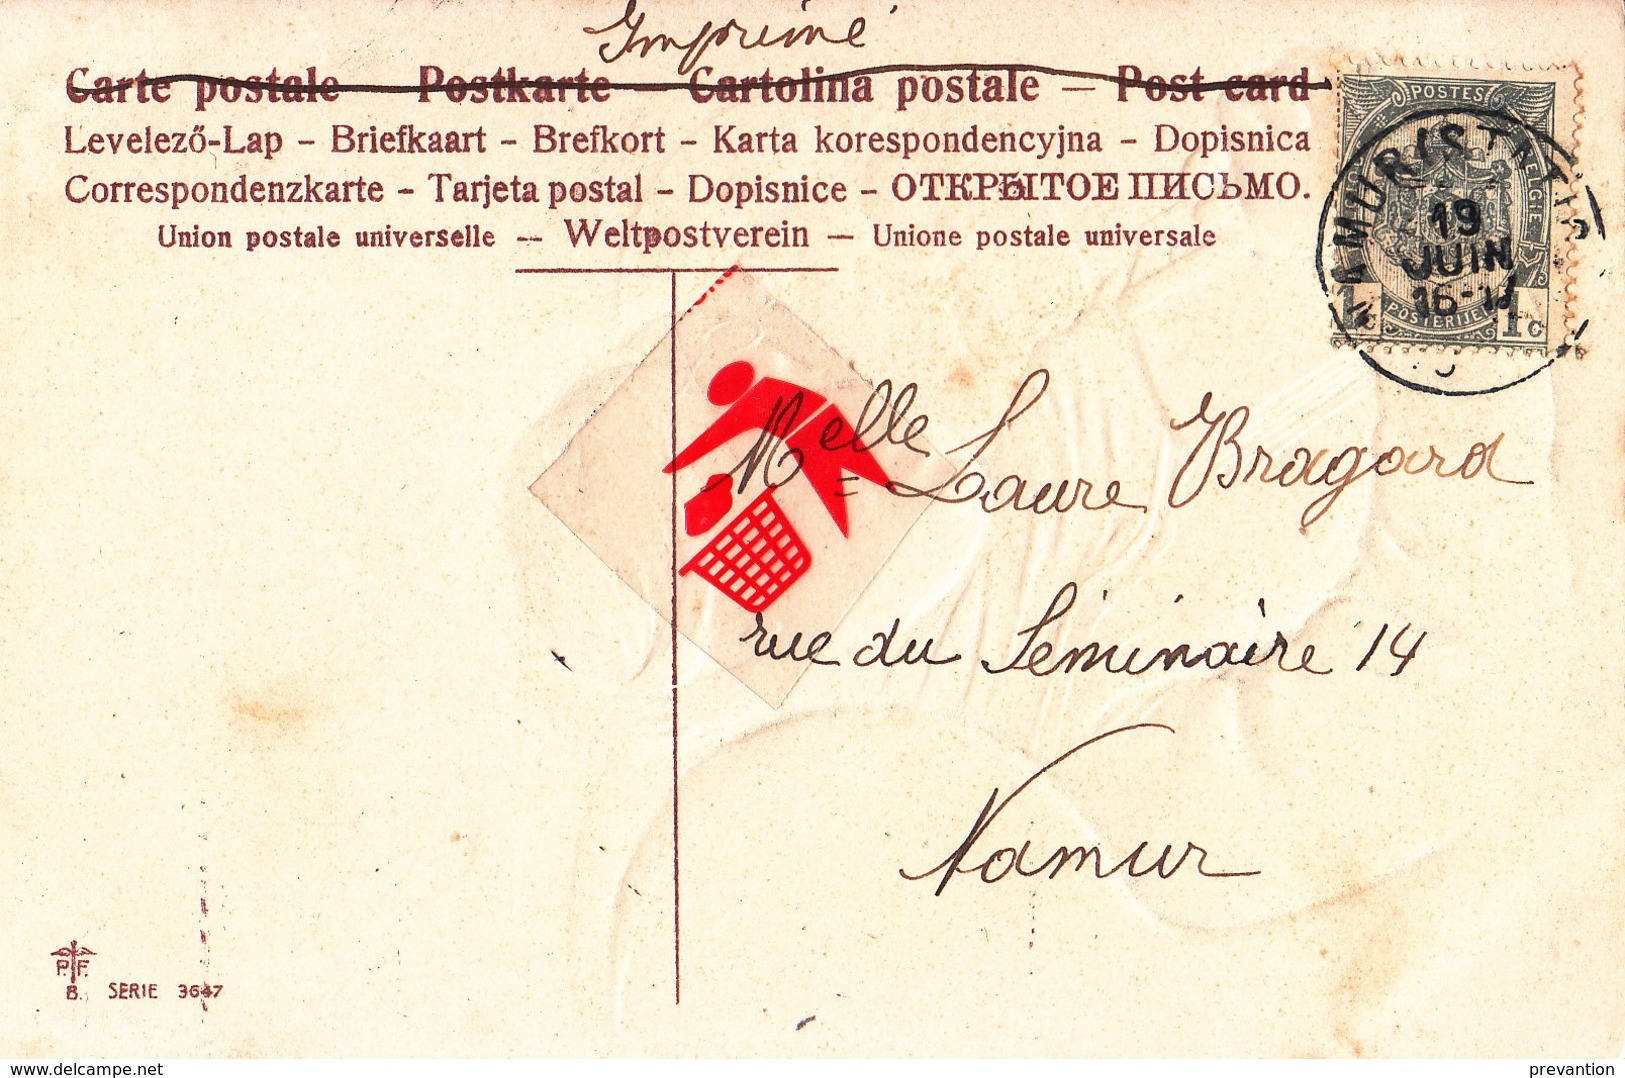 Imprimé
Carte postale – Postkarte – Cartolina postale – Post card
Levelező-Lap – Briefkaart – Brefkort – Karta korespondencyjna – Dopisnica
Correspondenzkarte – Tarjeta postal – Dopisnice – ОТКРЫТОЕ ПИСЬМО.
Union postale universelle — Weltpostverein — Unione postale universale
POSTES
BELGIE
POSTERIJEN
1c 1c
NAMUR
19
JUIN
Melle Laure Bragard
rue du Séminaire 14
Namur
P. F.
B. SERIE 3647
delcampe.net
prevantion